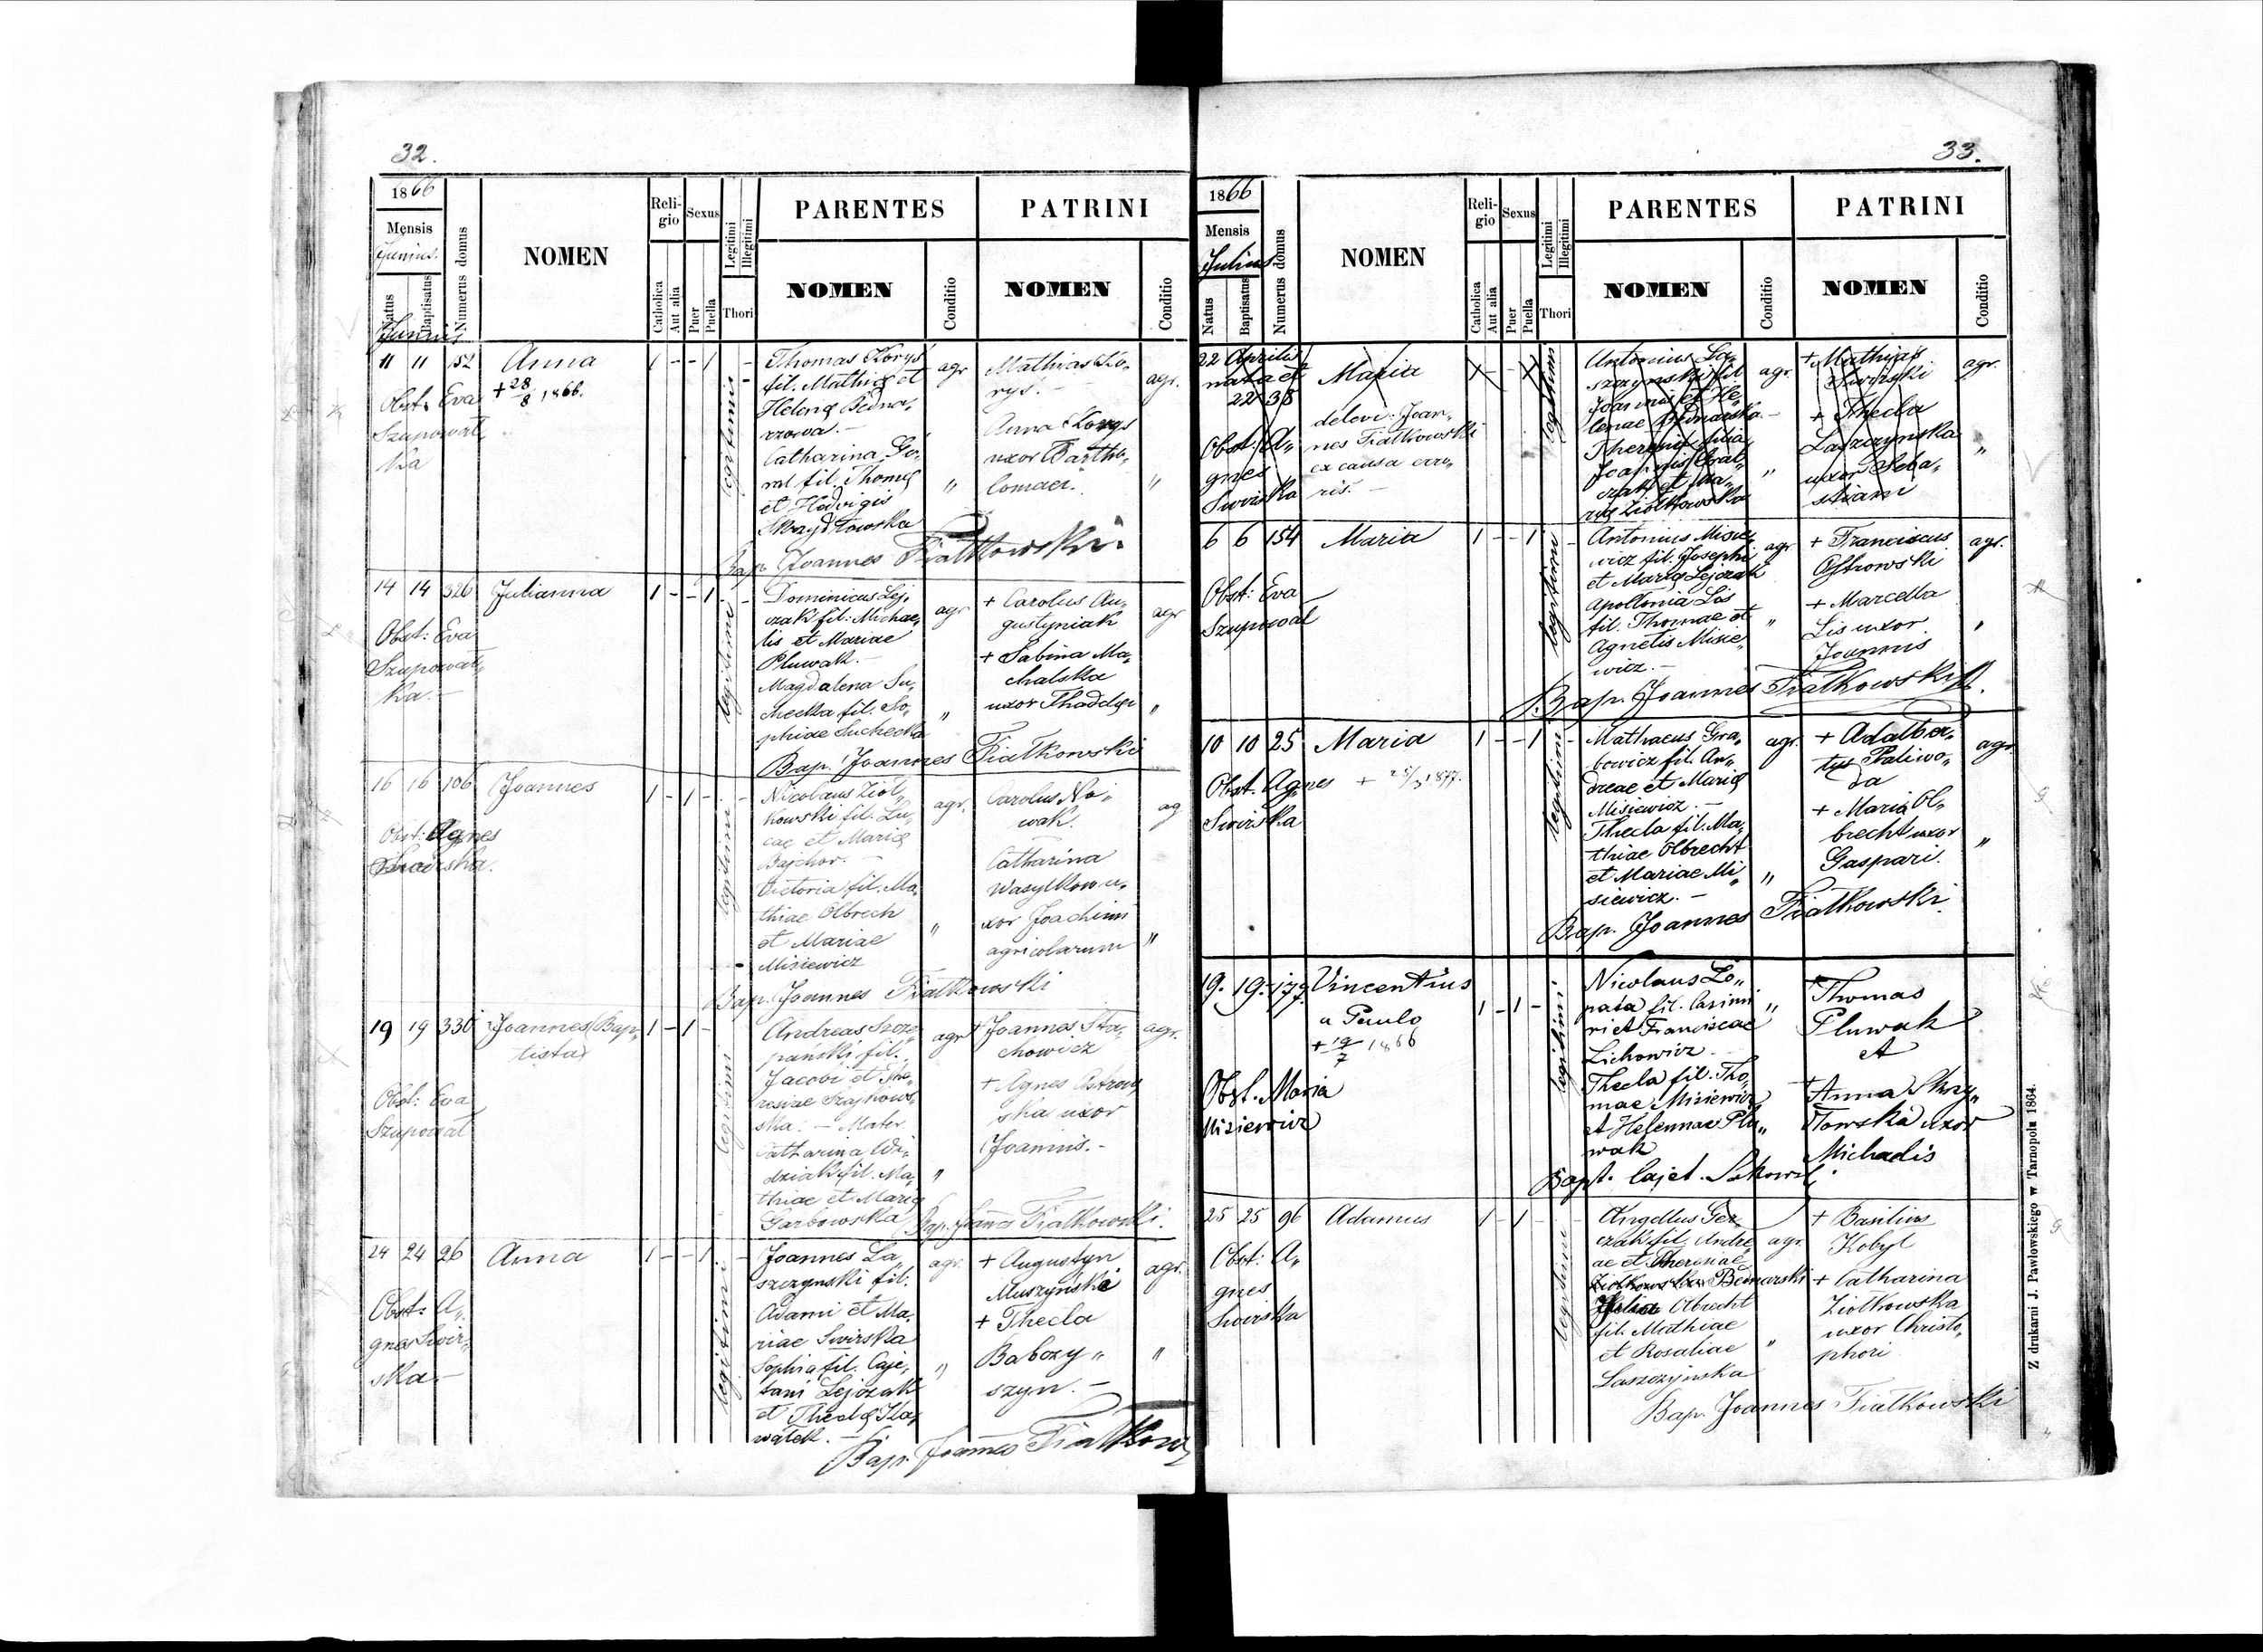 32.
1866
Mensis
Junius.
Natus
Baptisatus
Numerus domus
NOMEN
Reli-
gio
Catholica
Aut alia
Sexus
Puer
Puella
Legitimi
Illegitimi
Thori
PARENTES
NOMEN
Conditio
PATRINI
NOMEN
Conditio
Junius
11 11 152 Anna 1 - - 1 -
+ 28/8 1866.
Obst: Eva
Szupowat„
ka
legitimi
Thomas Korys
fil. Mathiæ et
Helenæ Bedna„
rzowa. -
Catharina Go„
ral fil. Thomæ
et Hedvigis
agr
„
Mathias Ko„
rys. -
Anna Korys
uxor Bartho„
lomaei.
agr.
„
Bap. Joannes Fiałkowski
14 14 326 Julianna 1 - - 1 -
Obst: Eva
Szupowat„
ka. -
legitimi
Dominicus Lej„
czak fil: Michae„
lis et Mariae
Pluwak. -
Magdalena Su„
checka fil. So„
phiae Suchecka
agr
„
+ Carolus Au„
gustyniak
+ Sabina Ma„
chalska
uxor Thaddæi
agr
„
Bap. Joannes Fiałkowski
16 16 106 Joannes 1 - 1 - -
Obst: Agnes
Swirska.
legitimi
Nicolaus Ziół„
kowski fil. Lu„
cae et Mariæ
Bajchor. -
Victoria fil. Ma„
thiae Olbrech
et Mariae
Misiewicz
agr.
„
Carolus No„
wak.
Catharina
Wasylkow u„
xor Joachimi
agricolarum
ag
„
Bap. Joannes Fiałkowski
19 19 330 Joannes Bap„ 1 - 1 -
tista
Obst: Eva
Szupowat
legitimi
Andreas Szcze„
pański fil.
Jacobi et The„
resiae Szajkows„
ska. - Mater
Catharina
fil. Ma„
thiae et Mariæ
Garbowska
agr
„
+ Joannes Sta„
chowicz
+ Agnes Ostrow„
ska uxor
Joannis. -
agr.
Bap. Joannes Fiałkowski.
24 24 26 Anna 1 - - 1 -
Obst: A„
gnes Swir„
ska. -
legitimi
Joannes La„
szczynski fil.
Adami et Ma„
riae Swirska
Sophia fil. Caje„
tani Lejczak
et Theclæ Ka„
wałek. -
agr.
„
+ Augustyn
Muszyński
+ Thecla
Babczy„
szyn. -
agr.
„
Bap. Joannes Fiałkow
33.
1866
Mensis
Julius
Natus
Baptisatus
Numerus domus
NOMEN
Reli-
gio
Catholica
Aut alia
Sexus
Puer
Puella
Legitimi
Illegitimi
Thori
PARENTES
NOMEN
Conditio
PATRINI
NOMEN
Conditio
22 Aprilis
nata et
22 38
Maria
delevi Joan„
nes Fiałkowski
ex causa erro„
ris. -
Obst: A„
gnes
Swirska
legitimi
Antonius La„
szczynski fil
Joannis et He„
lenae Bednarska -
Theresia filia
Joannis
et Ma„
riæ Ziółkowska
agr.
„
+ Mathias
Swirski
+ Thecla
Laszczynska
uxor Seba„
stiani
agr.
„
6 6 154 Maria 1 - - 1 -
Obst: Eva
Szupowat
legitimi
Antonius Misie„
wicz fil. Josephi
et Mariæ Lejczak
Apollonia Lis
fil. Thomae et
Agnetis Misie„
wicz. -
agr
„
+ Franciscus
Ostrowski
+ Marcella
Lis uxor
Joannis
agr.
„
Bap. Joannes Fiałkowski
10 10 25 Maria 1 - - 1 -
+ 25/3 1877.
Obst. Agnes
Swirska
legitimi
Mathaeus Gra„
bowicz fil. An„
dreae et Mariæ
Misiewicz. -
Thecla fil. Ma„
thiae Olbrecht
et Mariae Mi„
siewicz. -
agr.
„
+ Adalber„
tus Paliwo„
da
+ Maria Ol„
brecht uxor
Gaspari.
agr.
„
Bap. Joannes Fiałkowski
19. 19. 177. Vincentius 1 - 1 -
a Paulo
+ 19/7 1866
Obst. Maria
Misiewicz
legitimi
Nicolaus Lo„
pata fil. Casimi
ri et Franciscae
Lichowicz -
Thecla fil. Tho„
mae Misiewicz
et Helennae Plu„
wak
„
+ Thomas
Pluwak
et
+ Anna Skrzy„
łowska uxor
Michaelis
Bapt. Cajet.
25 25 96 Adamus 1 - 1 -
Obst: A„
gnes
Swirska
legitimi
Angellus Ger„
czak fil. Andre„
ae et Theresiae
Ziółkowska Bednarski
Julia Olbrecht
fil. Mathiae
et Rosaliae
Laszczynska
agr.
„
+ Basilius
Kobyl
+ Catharina
Ziółkowska
uxor Christo„
phori
Bap. Joannes Fiałkowski
Z drukarni J. Pawłowskiego w Tarnopolu 1864.